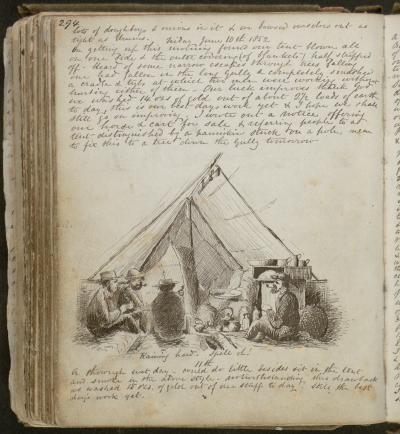 294.
lots of doughboys & onions in it & on bowsed ourselves out as
tight as drums. Friday June 10th 1852.
On getting up this morning found our tent blown all
on one side & the outer covering (of blankets) half stripped
off. Heard of some narrow escapes through trees falling
one had fallen in the long Gully & completely smashed
a cradle & tub at which two men were working, without
hurting either of them. Our luck improves thank God
we washed 14 ozs of gold out of about 2½ loads of earth
to day, this is our best days work yet & I hope we shall
still go on improving. I wrote out a notice, offering
our horse & cart for sale & refering people to a
tent distinguished by a pannikin stuck on a pole, mean
to fix this to a tree down the Gully tomorrow
Raining hard. Spell oh!
11th
A thorough wet day, could do little besides sit in the tent
and smoke in the above style. Notwithstanding this drawback
we washed 15 ozs of gold out of our stuff to day. Still the best
day's work yet.